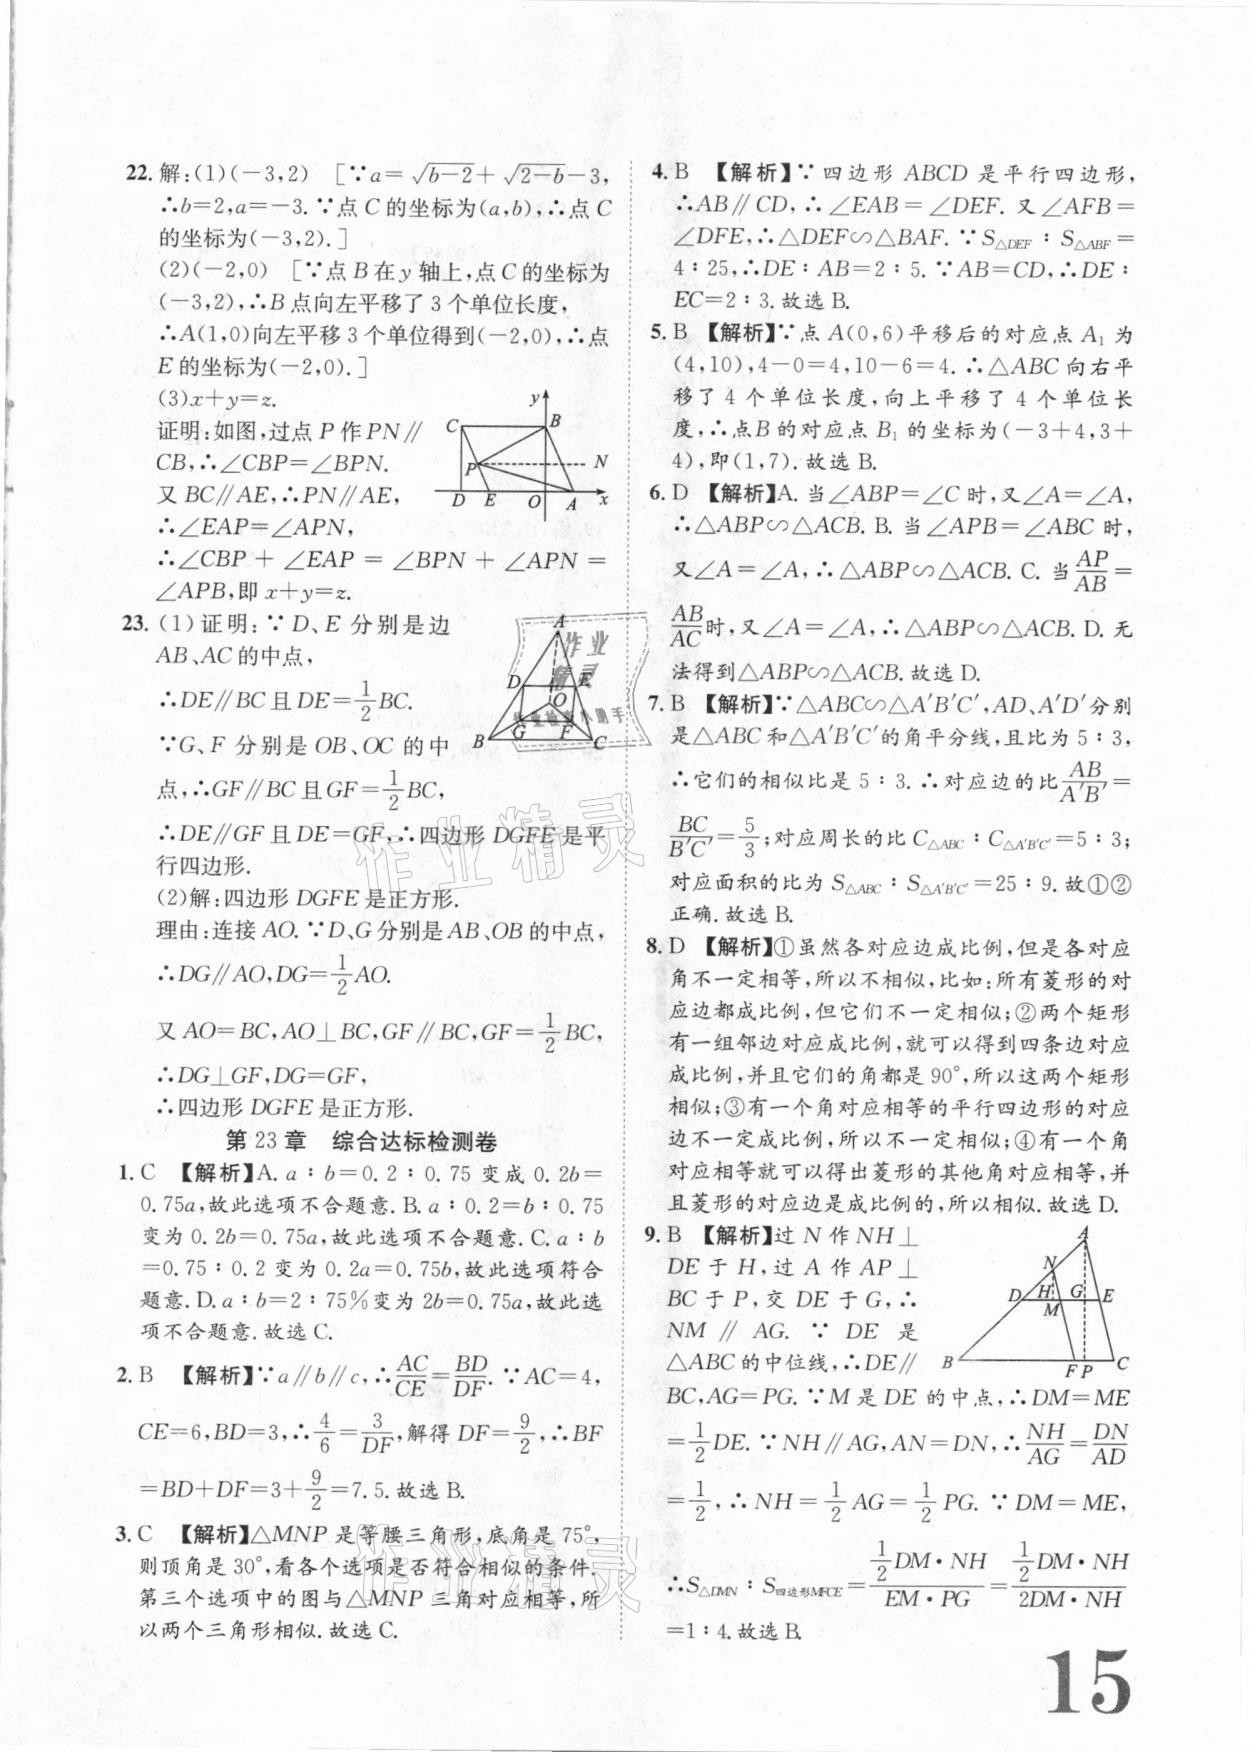 22. 解:(1)(-3,2) [∵a=√(b-2)+√(2-b)-3,
∴b=2,a=-3.∵点C的坐标为(a,b),∴点C
的坐标为(-3,2).]
(2)(-2,0) [∵点B在y轴上,点C的坐标为
(-3,2),∴B点向左平移了3个单位长度,
∴A(1,0)向左平移3个单位得到(-2,0).∴点
E的坐标为(-2,0).]
(3)x+y=z.
证明:如图,过点P作PN∥
CB,∴∠CBP=∠BPN.
又BC∥AE,∴PN∥AE,
∴∠EAP=∠APN,
∴∠CBP+∠EAP=∠BPN+∠APN=
∠APB,即x+y=z.
y
C
B
P
N
D
E
O
A
x
23. (1)证明:∵D、E分别是边
AB、AC的中点,
∴DE∥BC且DE=1/2BC.
∵G、F分别是OB、OC的中
点,∴GF∥BC且GF=1/2BC,
∴DE∥GF且DE=GF,∴四边形DGFE是平
行四边形.
(2)解:四边形DGFE是正方形.
理由:连接AO.∵D、G分别是AB、OB的中点,
∴DG∥AO,DG=1/2AO.
又AO=BC,AO⊥BC,GF∥BC,GF=1/2BC,
∴DG⊥GF,DG=GF,
∴四边形DGFE是正方形.
A
D
E
O
G
F
B
C
作业
精灵
作业检查小助手
作业精灵
第23章 综合达标检测卷
1. C 【解析】A.a∶b=0.2∶0.75变成0.2b=
0.75a,故此选项不合题意.B.a∶0.2=b∶0.75
变为0.2b=0.75a,故此选项不合题意.C.a∶b
=0.75∶0.2变为0.2a=0.75b,故此选项符合
题意.D.a∶b=2∶75%变为2b=0.75a,故此选
项不合题意.故选C.
2. B 【解析】∵a∥b∥c,∴AC/CE=BD/DF.∵AC=4,
CE=6,BD=3,∴4/6=3/DF,解得DF=9/2,∴BF
=BD+DF=3+9/2=7.5.故选B.
3. C 【解析】△MNP是等腰三角形,底角是75°,
则顶角是30°,看各个选项是否符合相似的条件.
第三个选项中的图与△MNP三角对应相等,所
以两个三角形相似.故选C.
作业精灵
4. B 【解析】∵四边形ABCD是平行四边形,
∴AB∥CD,∴∠EAB=∠DEF.又∠AFB=
∠DFE,∴△DEF∽△BAF.∵S△DEF∶S△ABF=
4∶25,∴DE∶AB=2∶5.∵AB=CD,∴DE∶
EC=2∶3.故选B.
5. B 【解析】∵点A(0,6)平移后的对应点A₁为
(4,10),4-0=4,10-6=4.∴△ABC向右平
移了4个单位长度,向上平移了4个单位长
度,∴点B的对应点B₁的坐标为(-3+4,3+
4),即(1,7).故选B.
6. D 【解析】A.当∠ABP=∠C时,又∠A=∠A,
∴△ABP∽△ACB.B.当∠APB=∠ABC时,
又∠A=∠A,∴△ABP∽△ACB.C.当AP/AB=
AB/AC时,又∠A=∠A,∴△ABP∽△ACB.D.无
法得到△ABP∽△ACB.故选D.
7. B 【解析】∵△ABC∽△A′B′C′,AD、A′D′分别
是△ABC和△A′B′C′的角平分线,且比为5∶3,
∴它们的相似比是5∶3.∴对应边的比AB/A′B′=
BC/B′C′=5/3;对应周长的比C△ABC∶C△A′B′C′=5∶3;
对应面积的比为S△ABC∶S△A′B′C′=25∶9.故①②
正确.故选B.
8. D 【解析】①虽然各对应边成比例,但是各对应
角不一定相等,所以不相似,比如:所有菱形的对
应边都成比例,但它们不一定相似;②两个矩形
有一组邻边对应成比例,就可以得到四条边对应
成比例,并且它们的角都是90°,所以这两个矩形
相似;③有一个角对应相等的平行四边形的对应
边不一定成比例,所以不一定相似;④有一个角
对应相等就可以得出菱形的其他角对应相等,并
且菱形的对应边是成比例的,所以相似.故选D.
9. B 【解析】过N作NH⊥
DE于H,过A作AP⊥
BC于P,交DE于G,∴
NM∥AG.∵DE是
△ABC的中位线,∴DE∥
BC,AG=PG.∵M是DE的中点,∴DM=ME
=1/2DE.∵NH∥AG,AN=DN,∴NH/AG=DN/AD
=1/2,∴NH=1/2AG=1/2PG.∵DM=ME,
∴S△DMN∶S四边形MFCE=(1/2DM·NH)/(EM·PG)=(1/2DM·NH)/(2DM·NH)
=1∶4.故选B.
A
N
D
H
G
E
M
B
F
P
C
15